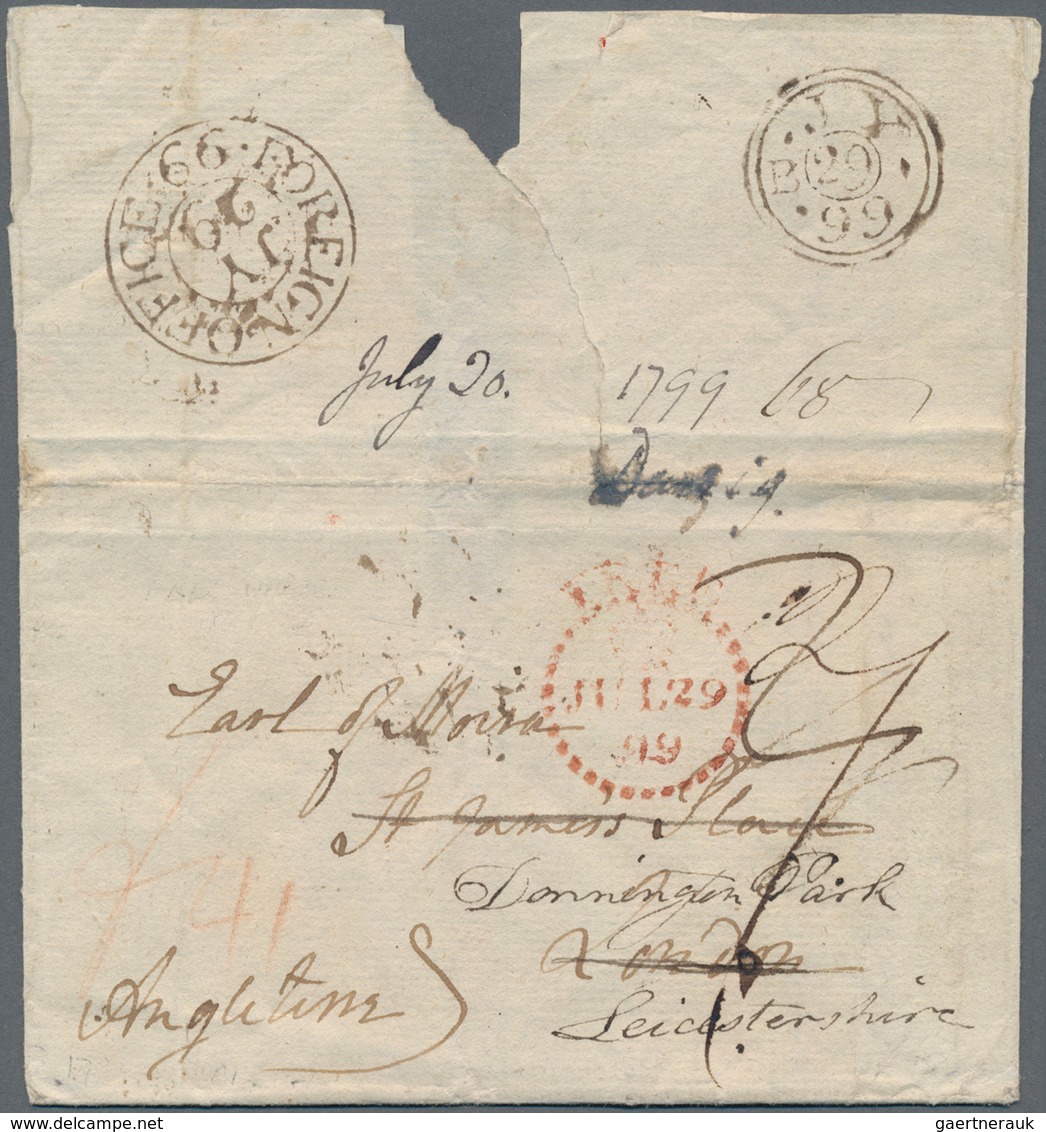 FOREIGN · OFFICE · 99 ·
JY
29
· JY ·
B 29
· 99
July 20. 1799 68
Danzig.
FREE
JUL 29
99
Earl of Moira
St James's Place
Donnington Park
London
Leicestershire
41
Angleterre
gaertnerauk